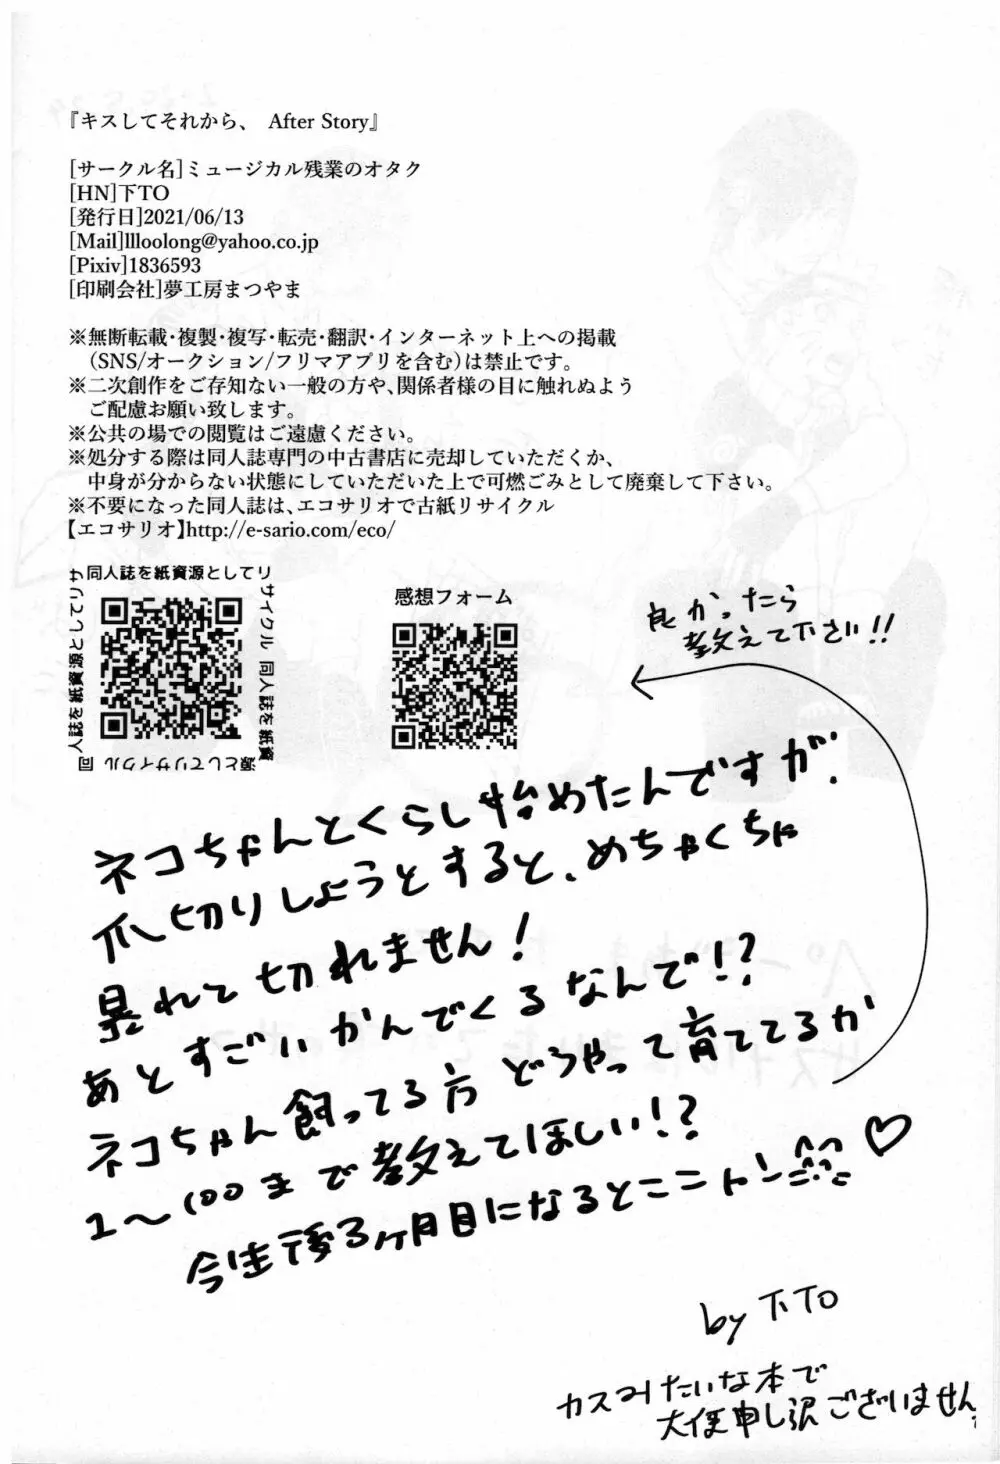 『キスしてそれから、 After Story』
[サークル名]ミュージカル残業のオタク
[HN]下TO
[発行日]2021/06/13
[Mail]llloolong@yahoo.co.jp
[Pixiv]1836593
[印刷会社]夢工房まつやま
※無断転載・複製・複写・転売・翻訳・インターネット上への掲載
（SNS/オークション/フリマアプリを含む）は禁止です。
※二次創作をご存知ない一般の方や、関係者様の目に触れぬよう
ご配慮お願い致します。
※公共の場での閲覧はご遠慮ください。
※処分する際は同人誌専門の中古書店に売却していただくか、
中身が分からない状態にしていただいた上で可燃ごみとして廃棄して下さい。
※不要になった同人誌は、エコサリオで古紙リサイクル
【エコサリオ】http://e-sario.com/eco/
同人誌を紙資源としてリ
サイクル 同人誌を紙資
源としてリサイクル 同
人誌を紙資源としてリサ
感想フォーム
良かったら
教えて下さい!!
ネコちゃんとくらし始めたんですが、
爪切りしようとすると、めちゃくちゃ
暴れて切れません!
あとすごいかんでくるなんで!?
ネコちゃん飼ってる方どうやって育ててるか
1〜100まで教えてほしい!?
今生後3ヶ月目になるとこ
by 下TO
カスみたいな本で
大変申し訳ございません